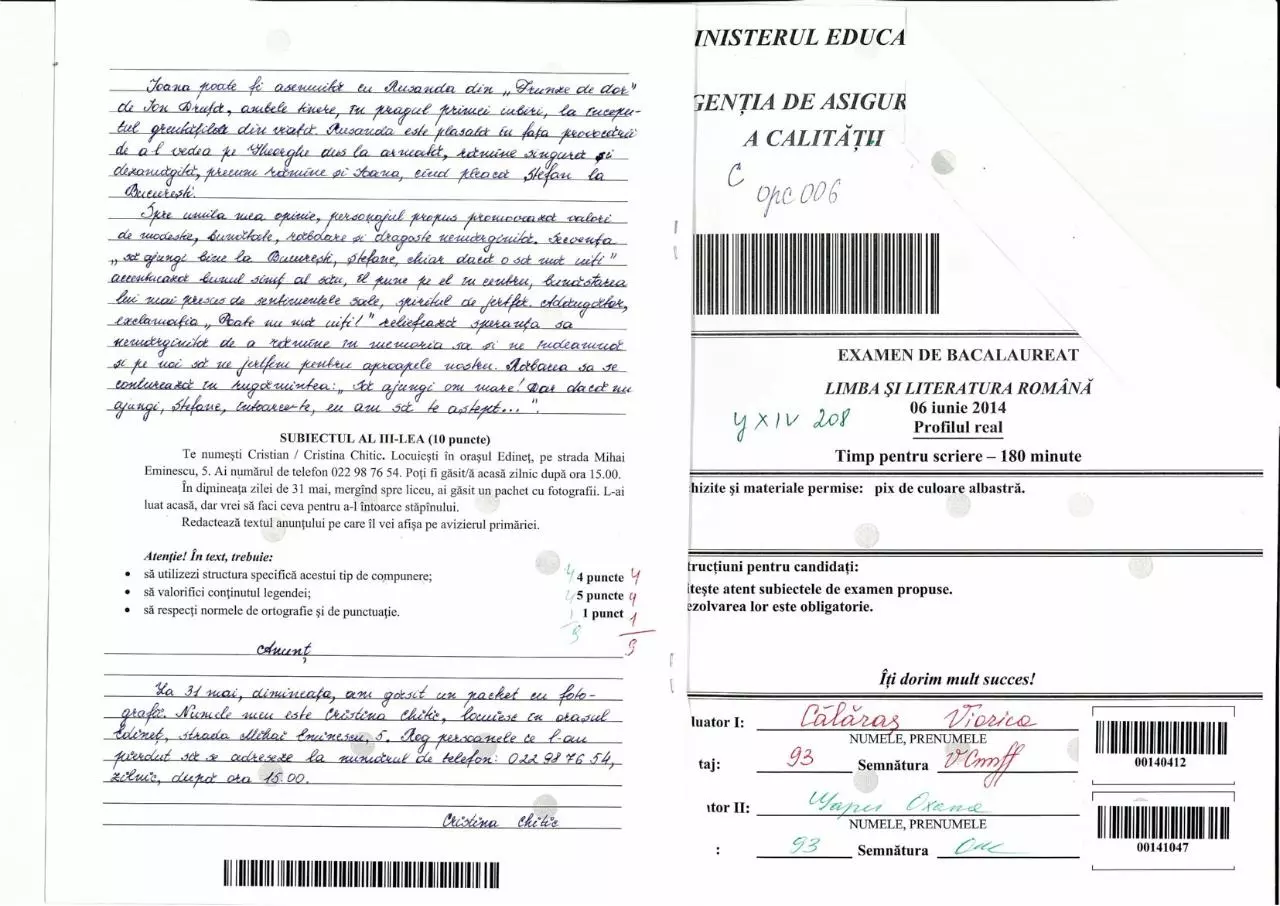 Ioana poate fi asemuită cu Rusanda din „Frunze de dor"
de Ion Druță, ambele tinere, în pragul primei iubiri, la începu-
tul greutăților din viață. Rusanda este plasată în fața provocării
de a-l vedea pe Gheorghe dus la armată, rămîne singură și
dezamăgită, precum rămîne și Ioana, cînd pleacă Ștefan la
București.
Spre umila mea opinie, personajul propus promovează valori
de modestie, bunătate, răbdare și dragoste nemărginită. Secvența
„să ajungi bine la București, Ștefane, chiar dacă o să mă uiți"
accentuează bunul simț al său, îl pune pe el în centru, bunăstarea
lui mai presus de sentimentele sale, spiritul de jertfă. Adăugător,
exclamația „Poate nu mă uiți!" reliefează speranța sa
nemărginită de a rămîne în memoria sa și ne îndeamnă
și pe noi să ne jertfim pentru aproapele nostru. Răbdarea sa se
conturează în rugămintea: „Să ajungi om mare! Dar dacă nu
ajungi, Ștefane, întoarce-te, eu am să te aștept...".
SUBIECTUL AL III-LEA (10 puncte)
Te numești Cristian / Cristina Chitic. Locuiești în orașul Edineț, pe strada Mihai
Eminescu, 5. Ai numărul de telefon 022 98 76 54. Poți fi găsit/ă acasă zilnic după ora 15.00.
În dimineața zilei de 31 mai, mergînd spre liceu, ai găsit un pachet cu fotografii. L-ai
luat acasă, dar vrei să faci ceva pentru a-l întoarce stăpînului.
Redactează textul anunțului pe care îl vei afișa pe avizierul primăriei.
Atenție! În text, trebuie:
• să utilizezi structura specifică acestui tip de compunere; 4 4 puncte 4
• să valorifici conținutul legendei; 4 5 puncte 4
• să respecți normele de ortografie și de punctuație. 1 1 punct 1
9 9
Anunț
La 31 mai, dimineața, am găsit un pachet cu foto-
grafii. Numele meu este Cristina Chitic, locuiesc în orașul
Edineț, strada Mihai Eminescu, 5. Rog persoanele ce l-au
pierdut să se adreseze la numărul de telefon: 022 98 76 54,
zilnic, după ora 15.00.
Cristina Chitic
INISTERUL EDUCA
GENȚIA DE ASIGUR
A CALITĂȚII
C
opc 006
EXAMEN DE BACALAUREAT
LIMBA ȘI LITERATURA ROMÂNĂ
06 iunie 2014
Profilul real
y XIV 208
Timp pentru scriere – 180 minute
hizite și materiale permise: pix de culoare albastră.
trucțiuni pentru candidați:
itește atent subiectele de examen propuse.
ezolvarea lor este obligatorie.
Îți dorim mult succes!
luator I: Călăraș Viorica
NUMELE, PRENUMELE
taj: 93 Semnătura
00140412
ator II: Oxana
NUMELE, PRENUMELE
: 93 Semnătura
00141047